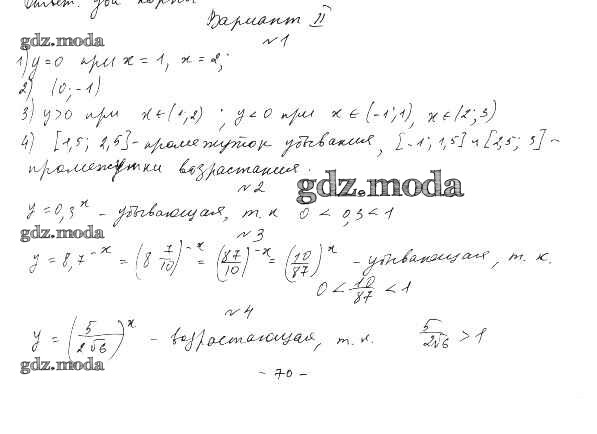 Вариант II
gdz.moda
№1
1) y=0 при x = 1, x = 2;
2) (0; -1)
3) y>0 при x ∈ (1;2) ; y<0 при x ∈ (-1;1), x ∈ (2; 3)
4) [1,5; 2,5] - промежуток убывания, [-1; 1,5] и [2,5; 3] -
промежутки возрастания.
№2
gdz.moda
y = 0,3^x - убывающая, т.к 0 < 0,3 < 1
gdz.moda
№3
y = 8,7^{-x} = (8 7/10)^{-x} = (87/10)^{-x} = (10/87)^x - убывающая, т.к.
0 < 10/87 < 1
№4
y = (5/2√6)^x - возрастающая, т.к. 5/2√6 > 1
gdz.moda
- 70 -